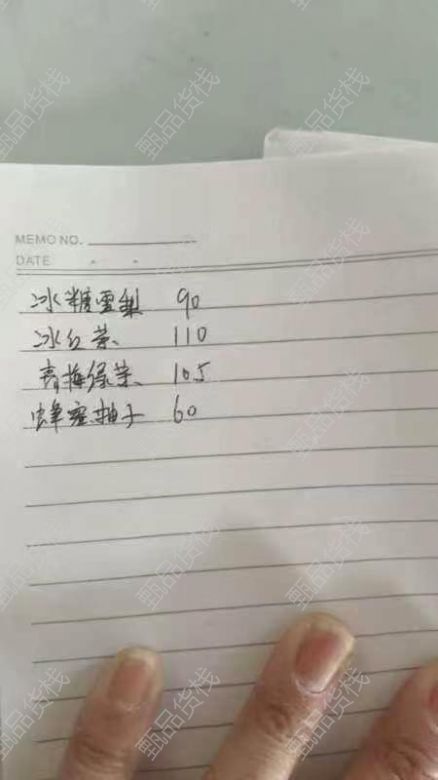 MEMO NO.
DATE
冰糖雪梨 90
冰红茶 110
青梅绿茶 105
蜂蜜柚子 60
甄品货栈